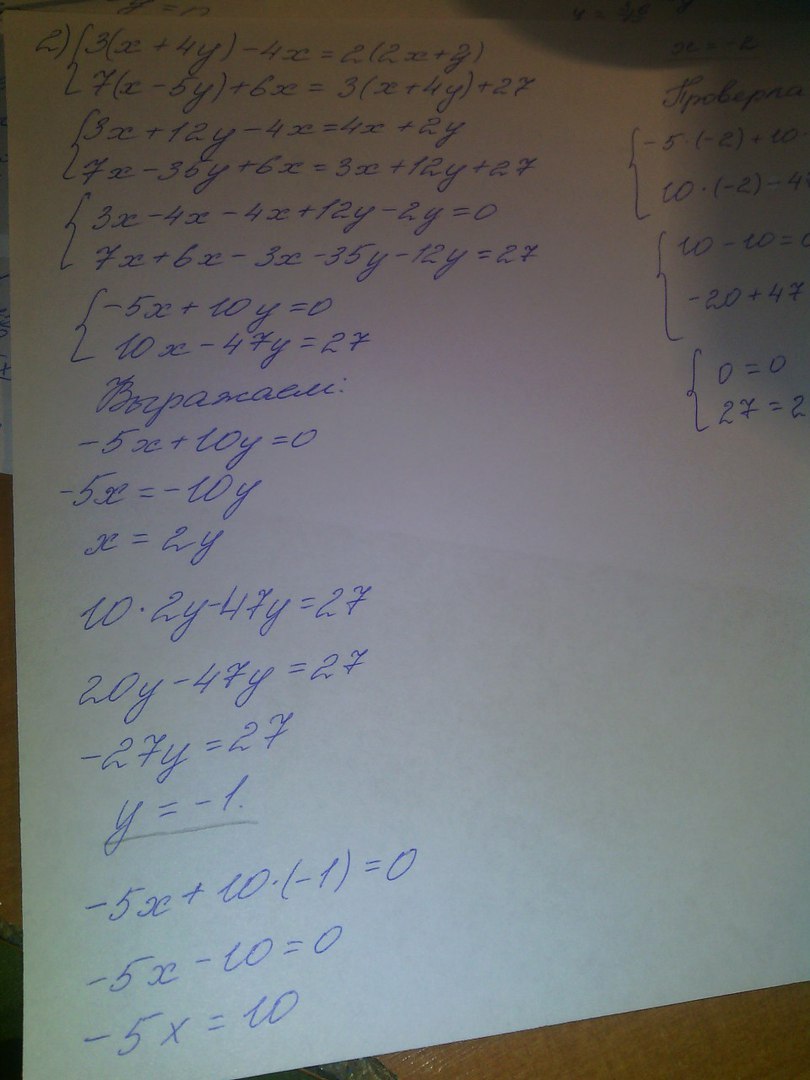 2) 3(x+4y)-4x=2(2x+y)
7(x-5y)+6x=3(x+4y)+27
3x+12y-4x=4x+2y
7x-35y+6x=3x+12y+27
3x-4x-4x+12y-2y=0
7x+6x-3x-35y-12y=27
-5x+10y=0
10x-47y=27
Выражаем:
-5x+10y=0
-5x=-10y
x=2y
10·2y-47y=27
20y-47y=27
-27y=27
y=-1.
-5x+10·(-1)=0
-5x-10=0
-5x=10
x=-2
Проверка
-5·(-2)+10
10·(-2)-4
10-10=0
-20+47
0=0
27=2